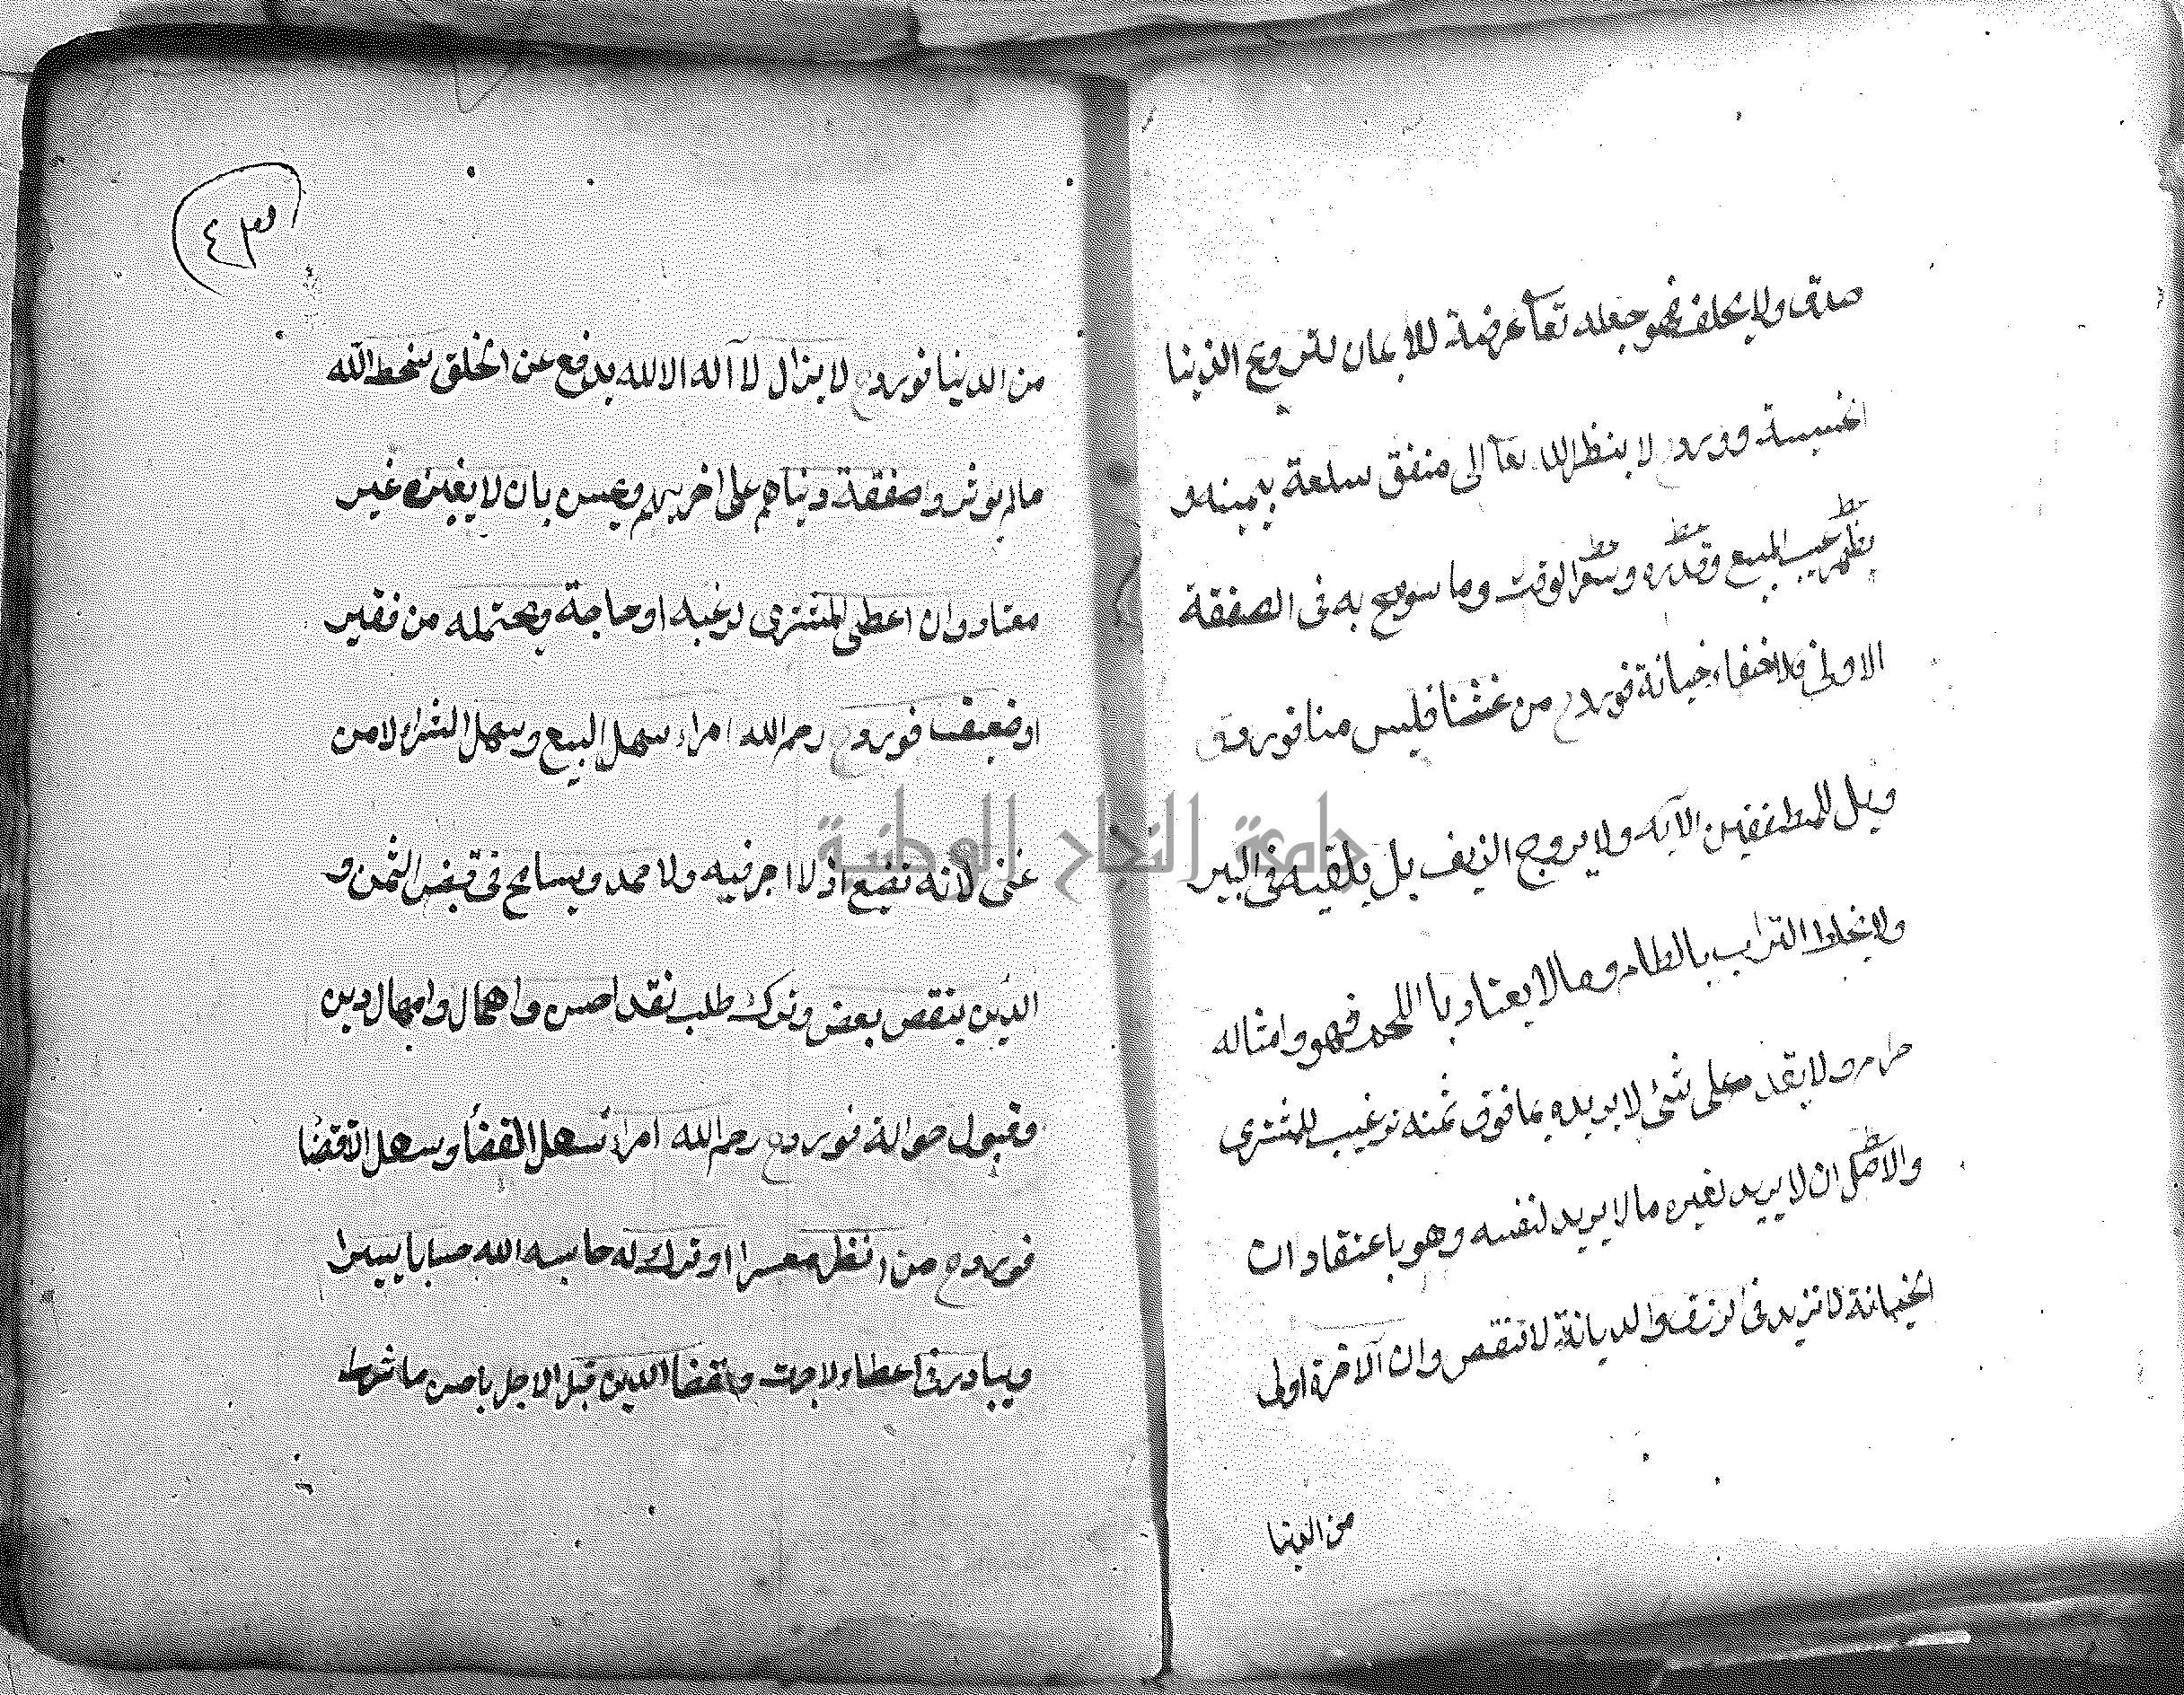 صدق ولا يحلف فهو جعله تعا عرضة للايمان لترويج الدنيا
الخسيسة وورد لا ينظر الله تعا الى منفق سلعة بيمينه و
يظهر عيب المبيع وقدره وسعر الوقت وما سومح به فى الصفقة
الاولى فلاخفاء خيانة فورد من غشنا فليس منا فورد ق
ويل للمطففين الآيه ولا يروج الزيف بل يلقيه فى البير
ولا يخلط التراب بالطعام ومالا يعتاد باللحم فهو وامثاله
حرام ولا يقدم على شئ لا يريده بما فوق ثمنه ترغيب للمشترى
والاصل ان لا يريد لغيره ما لا يريد لنفسه وهو باعتقاد ان
الخيانة لا تزيد فى الرزق والديانة لا تنقص وان الآخرة اولى
من الدنيا
٤٣
من الدنيا فورد لا يزال لا آله الا الله يدفع عن الخلق سخط الله
مالم يوثروا صفقة دنياهم على اخريهم ويحسن بان لا يغبن غير
معتاد وان اعطى المشترى لرغبه او حاجة ويحتمله من فقير
او ضعيف فورد رحم الله امراء سهل البيع وسهل الشراء لا من
غنى لانه تضييع اذ لا اجر فيه ولا حمد ويسامح فى قبض الثمن و
الدين بنقص بعض وترك طلب نقد احسن وامهال دين
وقبول حوالة فورد رحم الله امراء سهل القضا وسهل الاقتضا
فورد من انظر معسرا او ترك له حاسبه الله حسابا يسيرا
ويبادر فى اعطاء لاجرت وقضا الدين قبل الاجل باحسن ما شرط
جامعة النجاح الوطنية